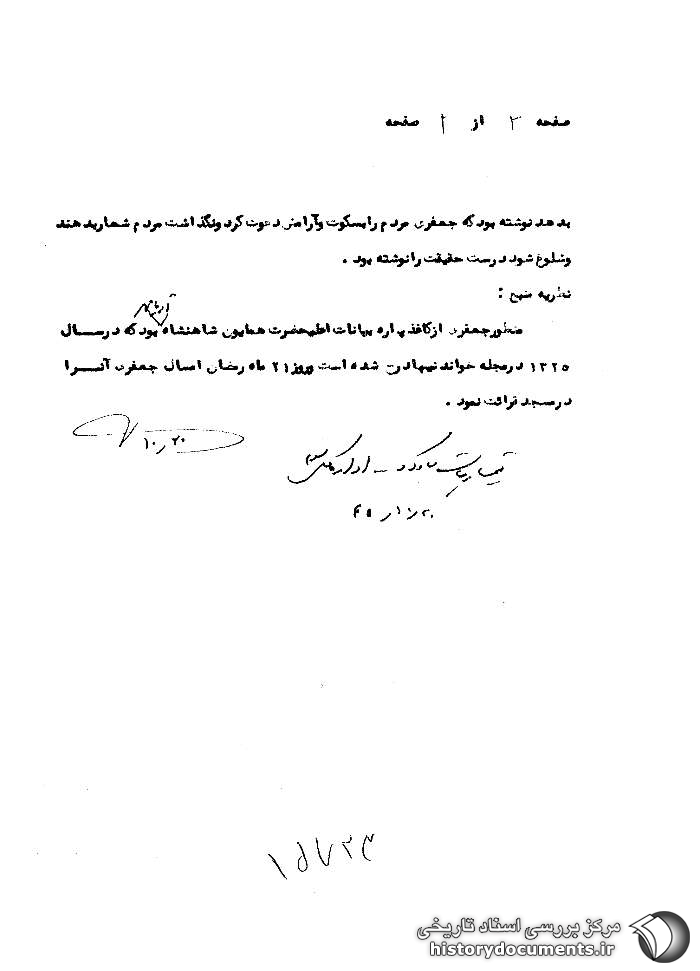 صفحه ۲ از ۲ صفحه
بدهد نوشته بود که جعفری مردم را بسکوت و آرامش دعوت کرد و نگذاشت مردم شعار بدهند
وشلوغ شود درست حقیقت را نوشته بود .
نظریه منبع :
منظور جعفری از کاغذ پاره بیانات اعلیحضرت همایون شاهنشاه بود که در سال
۱۳۲۵ در مجله خواندنیها درج شده است و روز ۲۱ ماه رمضان امسال جعفری آنرا
در مسجد قرائت نمود .
۱۰٫۲۰
۱۵۷۲۳
مرکز بررسی اسناد تاریخی
historydocuments.ir